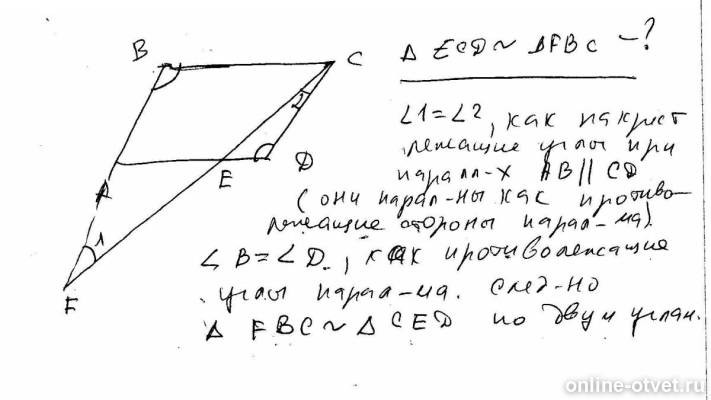 B
C
2
D
E
A
1
F
Δ ECD ~ ΔFBC -?
∠1=∠2, как накрест
лежащие углы при
паралл-х AB || CD
(они парал-ны как противо-
лежащие стороны парал-ма)
∠B=∠D, как противолежащие
углы парал-ма. след-но
Δ FBC ~ Δ CED по двум углам.
online-otvet.ru